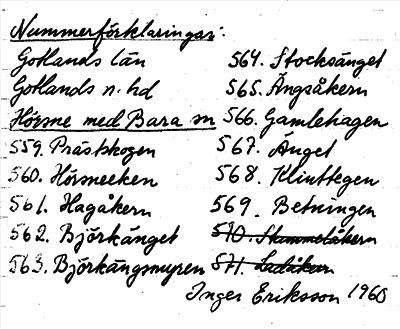 Nummerförklaringar:
Gotlands län
Gotlands n. hd
Hörsne med Bara sn
559. Prästskogen
560. Hörsneeken
561. Hagåkern
562. Björkänget
563. Björkängsmyren
564. Stocksänget
565. Ängsåkern
566. Gamlehagen
567. Änget
568. Klinttegen
569. Betningen
570. Stammelåkern
571. Ladåkern
Inger Eriksson 1960